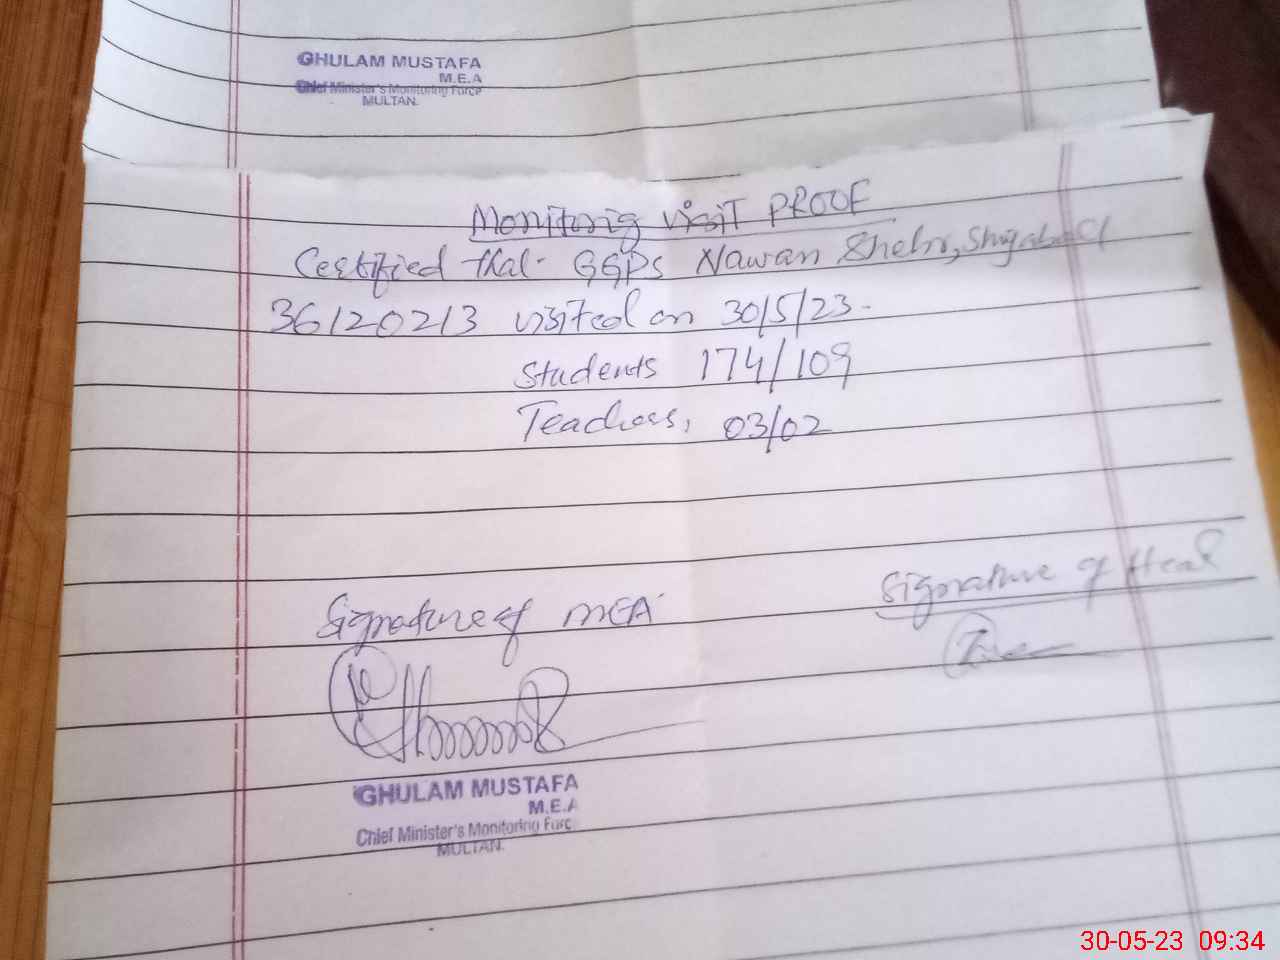 GHULAM MUSTAFA
M.E.A
Chief Minister's Monitoring Force
MULTAN.
Monitoring visit PROOF
Certified that GGPS Nawan Shehr, Shujabad
36120213 visited on 30/5/23.
Students 174/109
Teachers, 03/02
Signature of MEA
Signature of Head
GHULAM MUSTAFA
M.E.A
Chief Minister's Monitoring Forc
MULTAN.
30-05-23 09:34